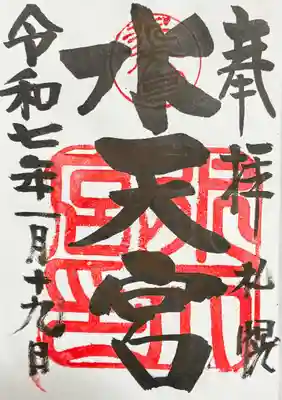 奉拝 札幌
水天宮
令和七年一月十九日